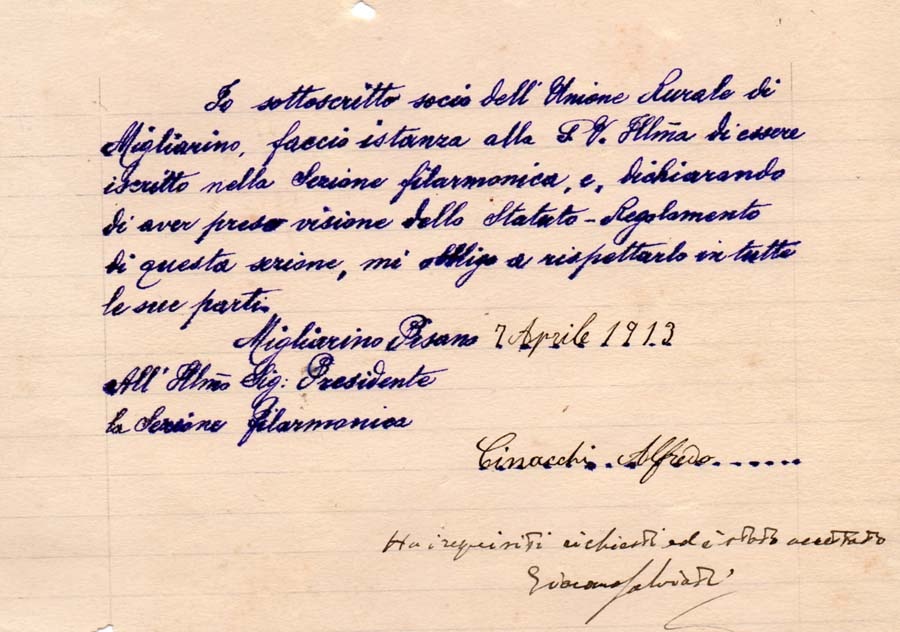 Io sottoscritto socio dell'Unione Rurale di
Migliarino, faccio istanza alla S. V. Illm̃a di essere
iscritto nella Sezione filarmonica, e, dichiarando
di aver preso visione dello Statuto-Regolamento
di questa sezione, mi obbligo a rispettarlo in tutte
le sue parti.
Migliarino Pisano 7 Aprile 1913
All' Illm̃o Sig: Presidente
la Sezione Filarmonica
Cinacchi Alfredo
Ha i requisiti richiesti ed è stato accettato
Salviati